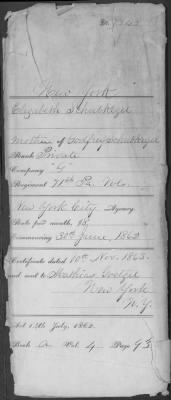 New York
Elizabeth Schabhezer
Mother of Godfrey Schabhezer
Rank Private
Company "G"
Regiment 71st Pa. Vols.
New York City, Agency.
Rate per month, $8,
Commencing 30th June, 1862
Certificate dated 10th Nov. 1863.
and sent to Mathias
New York
N.Y.
Act 14th July, 1862.
Book A Vol. 4 Page 93